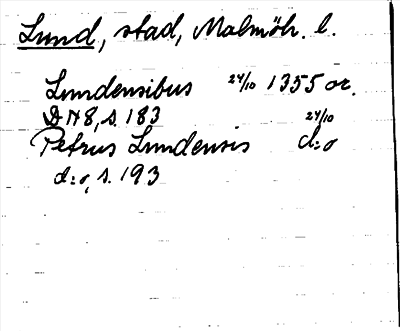 Lund, stad, Malmöh. l.
Lundensibus 24/10 1355 or.
DN 8, s. 183
Petrus Lundensis 24/10 d:o
d:o, s. 193